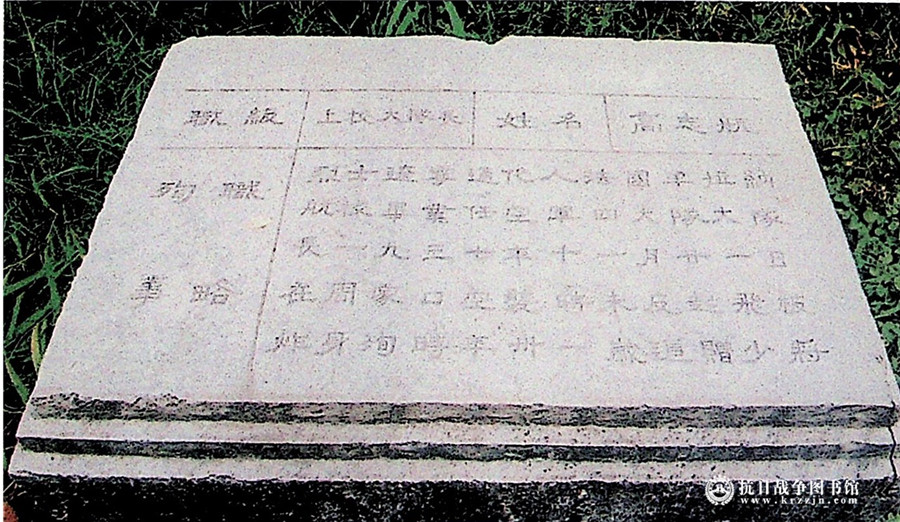 職級 上校大隊長 姓名 高志航
殉職 烈士遼寧通化人法國牟拉納
航校畢業任空軍四大隊大隊
長一九三七年十一月廿一日
事略 在周家口空襲時未及起飛被
炸身殉時年卅一歲追贈少將
抗日战争图书馆
www.krzzjn.com